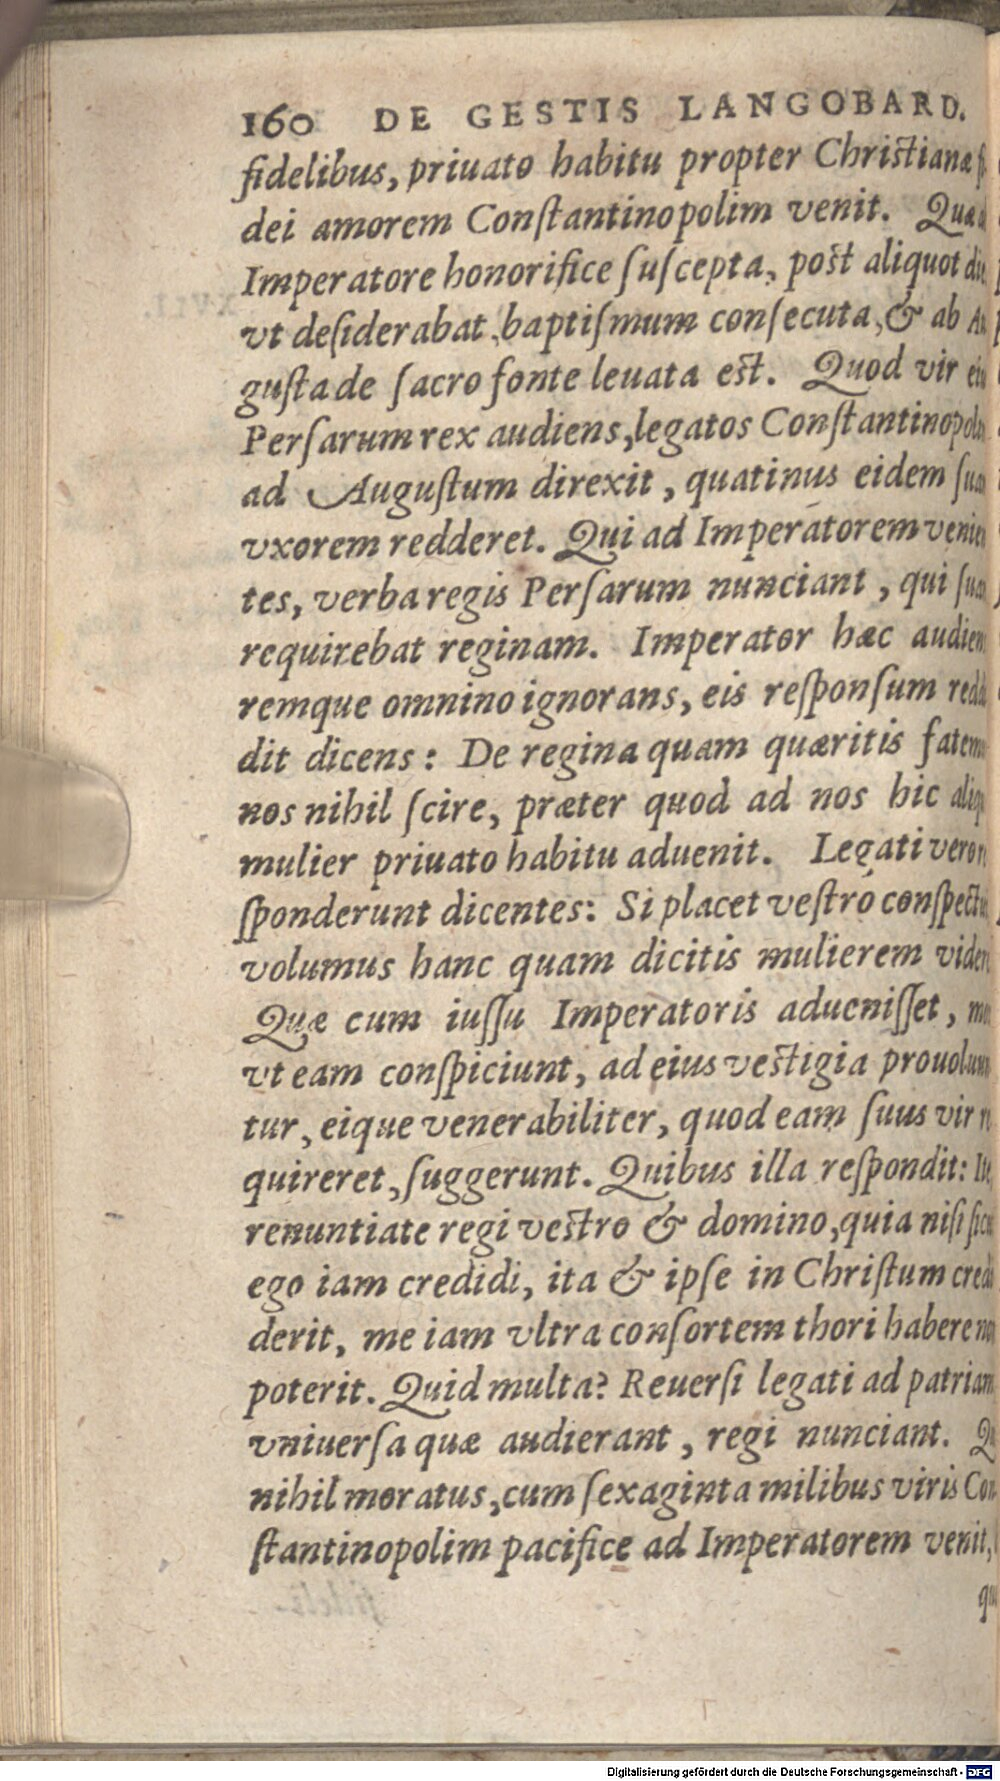 160 DE GESTIS LANGOBARD.
fidelibus, priuato habitu propter Christianæ fi
dei amorem Constantinopolim venit. Quæ
Imperatore honorifice suscepta, post aliquot
vt desiderabat, baptismum consecuta, & ab Au
gusta de sacro fonte leuata est. Quod vir
Persarum rex audiens, legatos Constantinopolim
ad Augustum direxit, quatinus eidem suam
vxorem redderet. Qui ad Imperatorem venien
tes, verba regis Persarum nunciant, qui suam
requirebat reginam. Imperator hæc audiens
remque omnino ignorans, eis responsum reddi
dit dicens: De regina quam quæritis fatemur
nos nihil scire, præter quod ad nos hic aliqua
mulier priuato habitu aduenit. Legati vero
sponderunt dicentes: Si placet vestro conspectui
volumus hanc quam dicitis mulierem videre
Quæ cum iussu Imperatoris aduenisset,
vt eam conspiciunt, ad eius vestigia prouolun
tur, eique venerabiliter, quod eam suus vir
quireret, suggerunt. Quibus illa respondit: Ite
renuntiate regi vestro & domino, quia nisi sicut
ego iam credidi, ita & ipse in Christum credi
derit, me iam vltra consortem thori habere non
poterit. Quid multa? Reuersi legati ad patriam
vniuersa quæ audierant, regi nunciant.
nihil moratus, cum sexaginta milibus viris Con
stantinopolim pacifice ad Imperatorem venit,
Digitalisierung gefördert durch die Deutsche Forschungsgemeinschaft - DFG